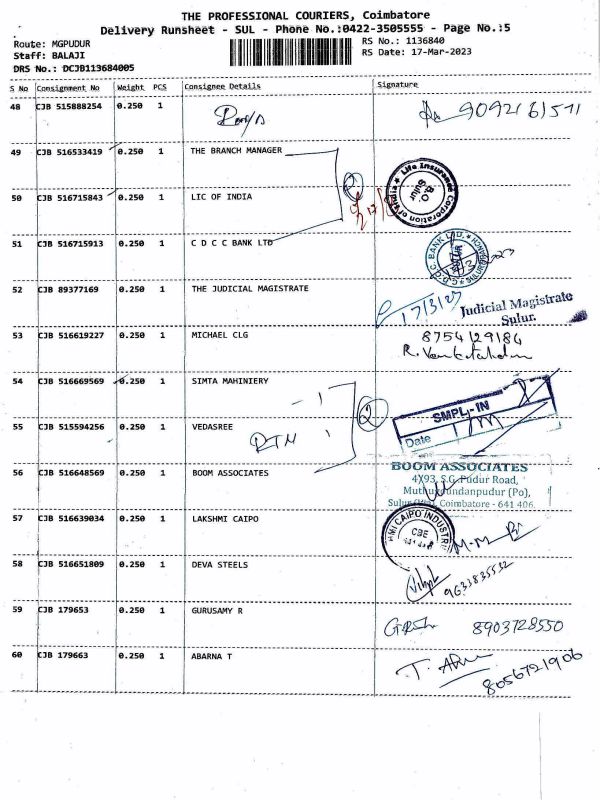 THE PROFESSIONAL COURIERS, Coimbatore
Delivery Runsheet - SUL - Phone No.:0422-3505555 - Page No.:5
Route: MGPUDUR
Staff: BALAJI
DRS No.: DCJB113684005
RS No.: 1136840
RS Date: 17-Mar-2023
S No Consignment No Weight PCS Consignee Details Signature
48 CJB 515888254 0.250 1 9092161571
49 CJB 516533419 0.250 1 THE BRANCH MANAGER
Life Insurance Corporation of India
B.O. Sulur
50 CJB 516715843 0.250 1 LIC OF INDIA
51 CJB 516715913 0.250 1 C D C C BANK LTD
52 CJB 89377169 0.250 1 THE JUDICIAL MAGISTRATE
17/3/23
Judicial Magistrate
Sulur.
53 CJB 516619227 0.250 1 MICHAEL CLG 8754129184
54 CJB 516669569 0.250 1 SIMTA MAHINIERY
SMPL-IN
Date
55 CJB 515594256 0.250 1 VEDASREE
RTN
2
56 CJB 516648569 0.250 1 BOOM ASSOCIATES
BOOM ASSOCIATES
4/93, S.G. Pudur Road,
Coimbatore - 641 406.
57 CJB 516639034 0.250 1 LAKSHMI CAIPO
CAIPO INDUSTRIE
CBE
58 CJB 516651809 0.250 1 DEVA STEELS
9633835532
59 CJB 179653 0.250 1 GURUSAMY R
8903728550
60 CJB 179663 0.250 1 ABARNA T
8056721906